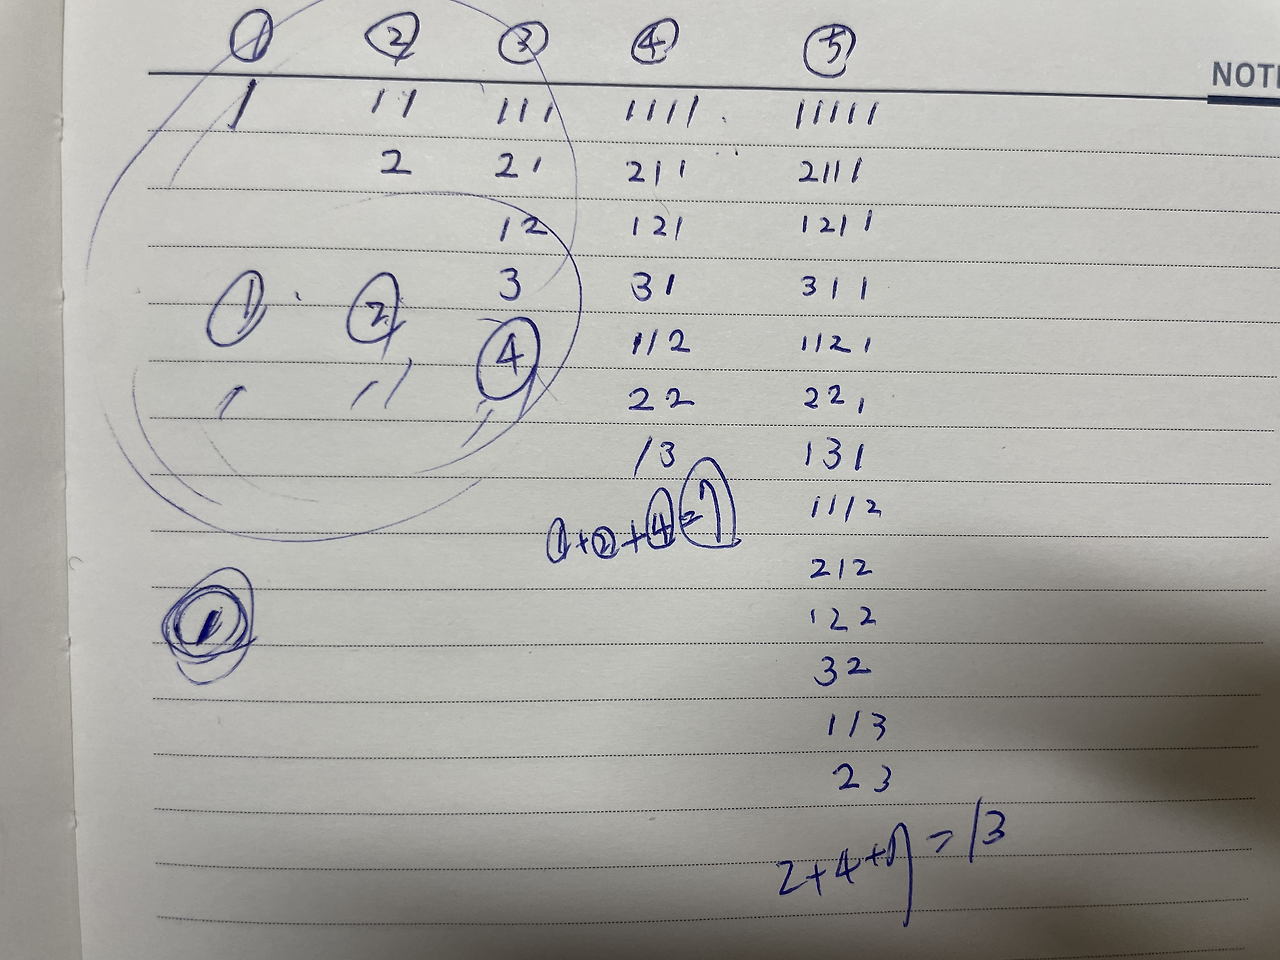 ① ② ③ ④ ⑤
NOT
1 11 111 1111 11111
2 21 211 2111
12 121 1211
3 31 311
① ② ④
112 1121
1 11 11
22 221
13 131
1+2+4=7
1112
212
①
122
32
113
23
2+4+7=13